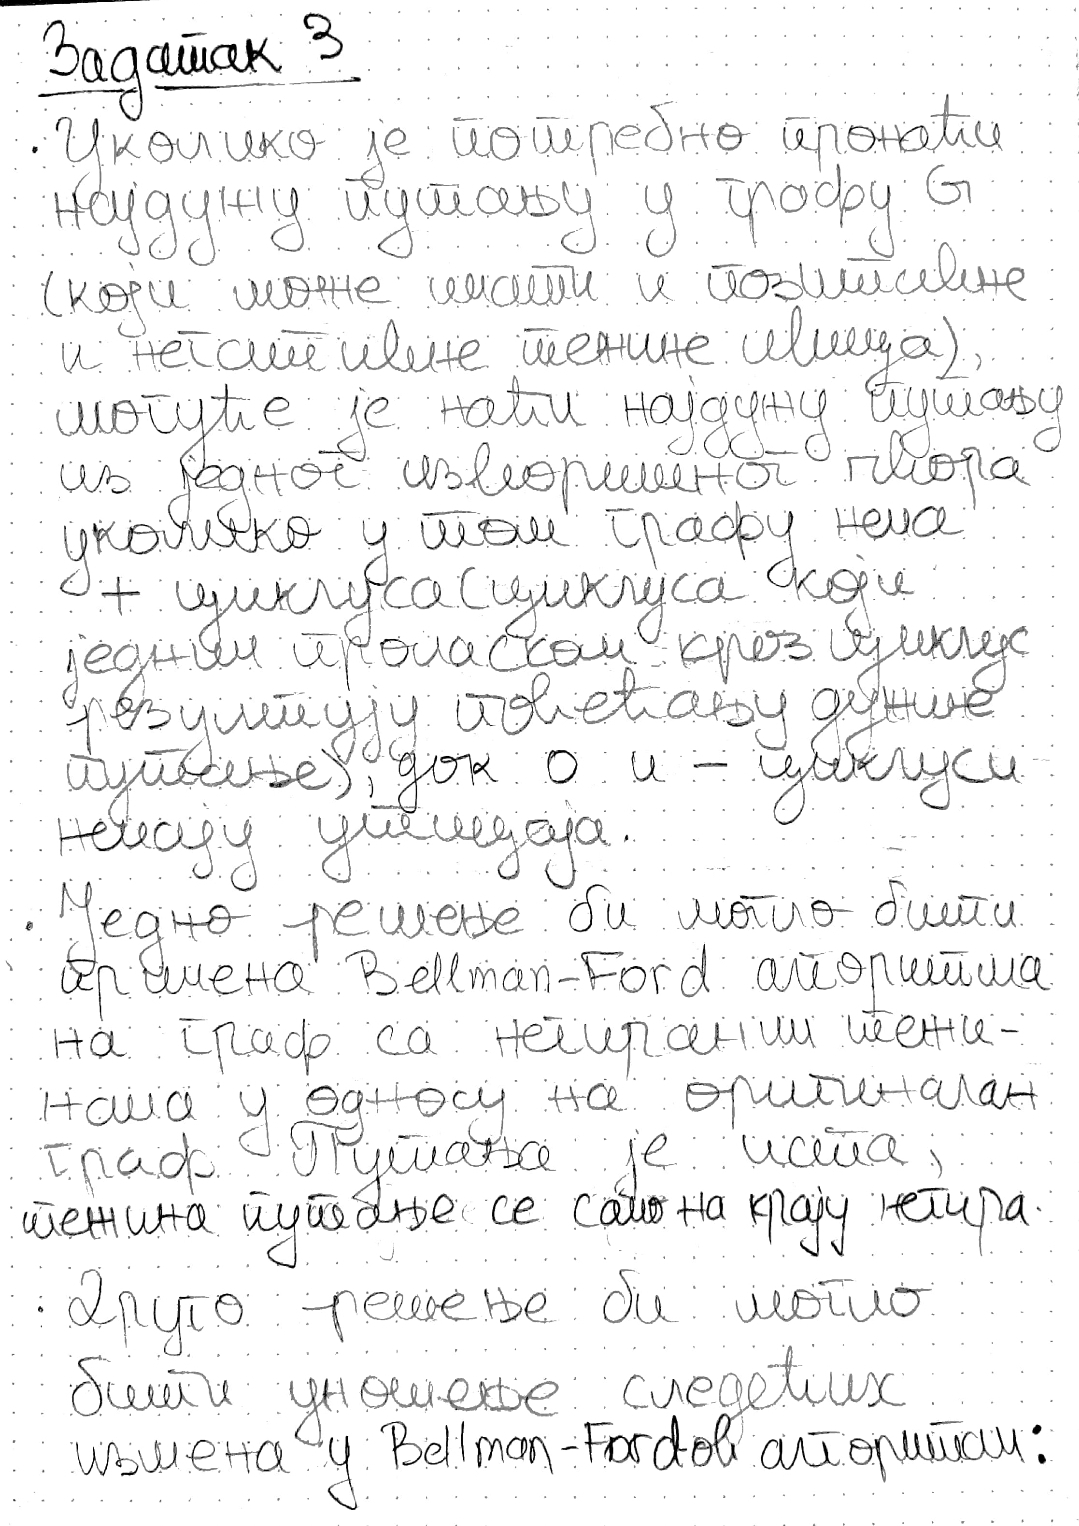 Задатак 3
· Уколико је потребно пронаћи
најдужу путању у графу G
(који може имати и позитивне
и негативне тежине ивица),
могуће је наћи најдужу путању
из једног изворишног чвора
уколико у том графу нема
+ циклуса (циклуса који
једним проласком кроз циклус
резултују повећању дужине
путање), док 0 и – циклуси
немају утицаја.
· Једно решење би могло бити
примена Bellman-Ford алгоритма
на граф са негираним тежи-
нама у односу на оригиналан
граф. Путања је иста,
тежина путање се само на крају негира.
· Друго решење би могло
бити уношење следећих
измена у Bellman-Fordов алгоритам: